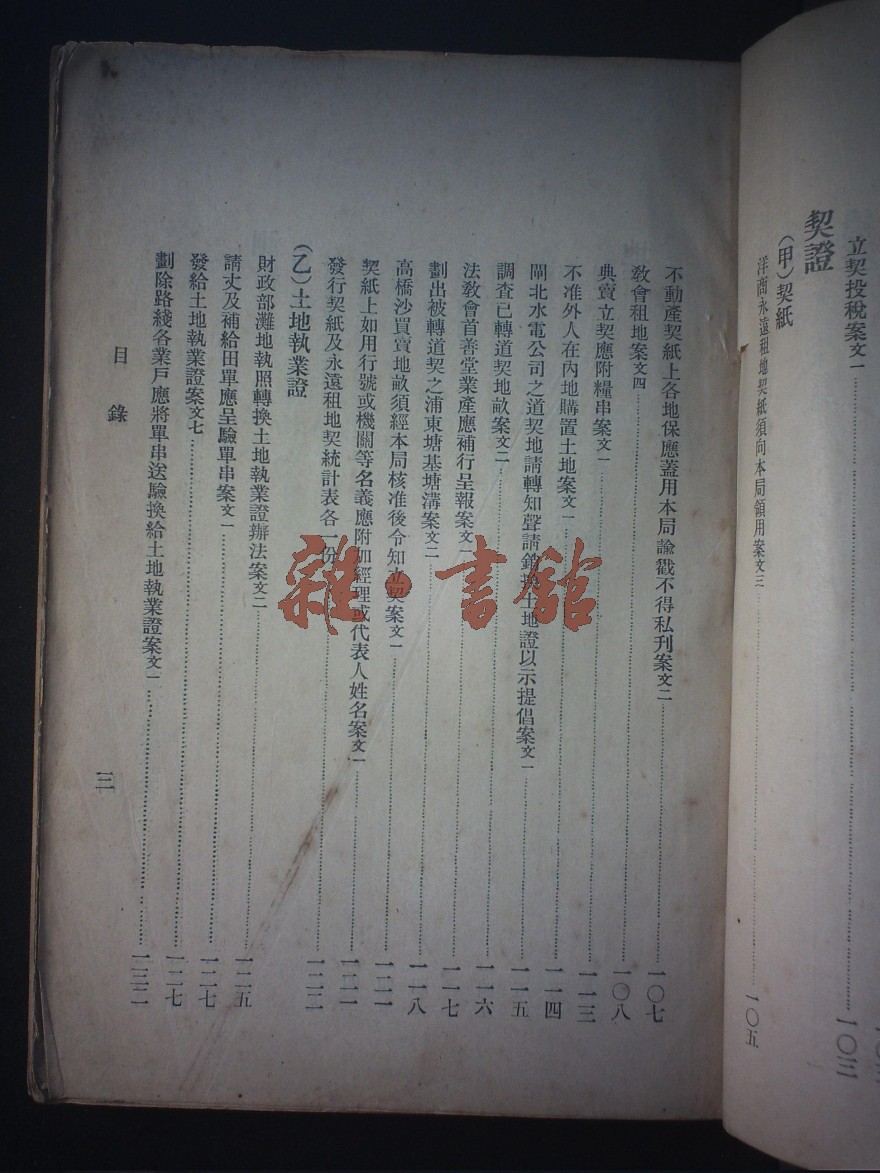 立契投稅案文一……一〇三
契證
（甲）契紙
洋商永遠租地契紙須向本局領用案文三……一〇五
不動產契紙上各地保應蓋用本局諭戳不得私刋案文二……一〇七
敎會租地案文四……一〇八
典賣立契應附糧串案文一……一一三
不准外人在內地購置土地案文一……一一四
閘北水電公司之道契地請轉知聲請銷換土地證以示提倡案文一……一一五
調查已轉道契地畝案文二……一一六
法敎會首善堂業產應補行呈報案文一……一一七
劃出被轉道契之浦東塘基塘溝案文二……一一八
高橋沙買賣地畝須經本局核准後令知立契案文一……一二一
契紙上如用行號或機關等名義應附加經理或代表人姓名案文一……一二一
發行契紙及永遠租地契統計表各一份……一二二
（乙）土地執業證
財政部灘地執照轉換土地執業證辦法案文二……一二五
請丈及補給田單應呈驗單串案文一……一二七
發給土地執業證案文七……一二七
劃除路綫各業戶應將單串送驗換給土地執業證案文一……一三二
目錄
三
雜·書館